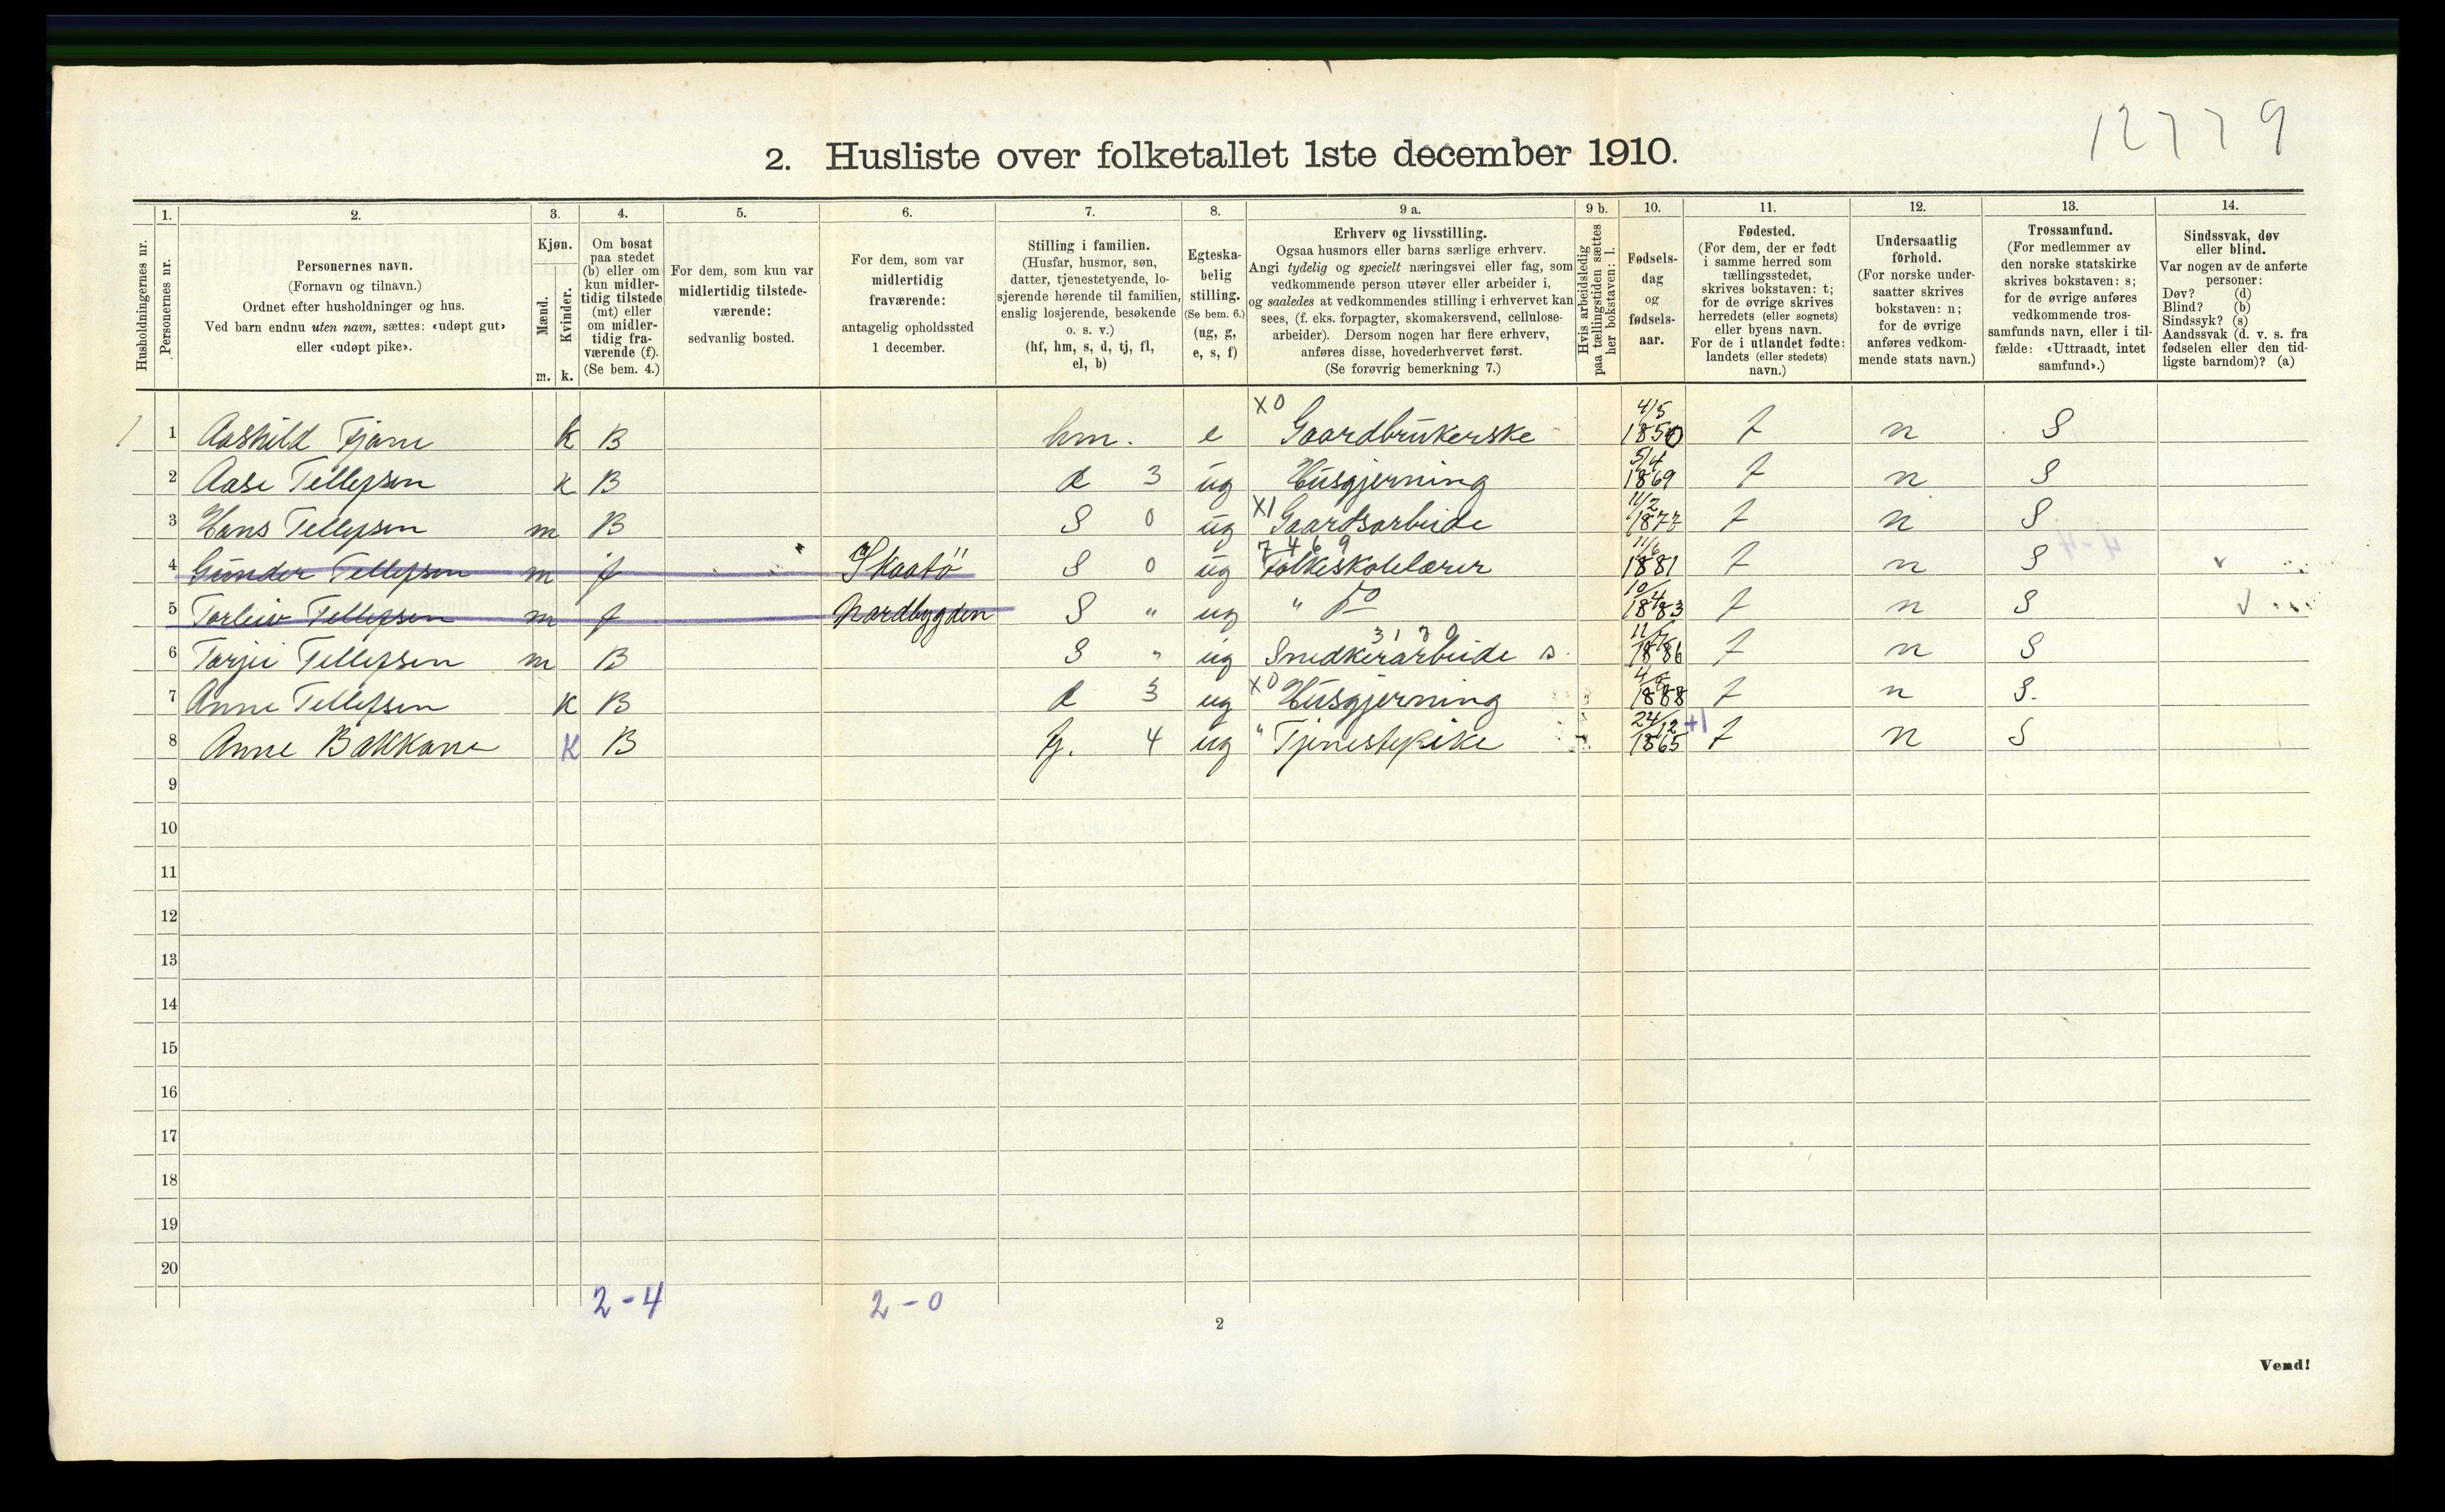 12779
2. Husliste over folketallet 1ste december 1910.
Husholdningernes nr.
1. Personernes nr.
2. Personernes navn.
(Fornavn og tilnavn.)
Ordnet efter husholdninger og hus.
Ved barn endnu uten navn, sættes: «udøpt gut»
eller «udøpt pike».
3. Kjøn.
Mænd. Kvinder.
m. k.
4. Om bosat
paa stedet
(b) eller om
kun midler-
tidig tilstede
(mt) eller
om midler-
tidig fra-
værende (f).
(Se bem. 4.)
5. For dem, som kun var
midlertidig tilstede-
værende:
sedvanlig bosted.
6. For dem, som var
midlertidig
fraværende:
antagelig opholdssted
1 december.
7. Stilling i familien.
(Husfar, husmor, søn,
datter, tjenestetyende, lo-
sjerende hørende til familien,
enslig losjerende, besøkende
o. s. v.)
(hf, hm, s, d, tj, fl,
el, b)
8. Egteska-
belig
stilling.
(Se bem. 6.)
(ug, g,
e, s, f)
9 a. Erhverv og livsstilling.
Ogsaa husmors eller barns særlige erhverv.
Angi tydelig og specielt næringsvei eller fag, som
vedkommende person utøver eller arbeider i,
og saaledes at vedkommendes stilling i erhvervet kan
sees, (f. eks. forpagter, skomakersvend, cellulose-
arbeider). Dersom nogen har flere erhverv,
anføres disse, hovederhvervet først.
(Se forøvrig bemerkning 7.)
9 b. Hvis arbeidsledig
paa tællingstiden sættes
her bokstaven: l.
10. Fødsels-
dag
og
fødsels-
aar.
11. Fødested.
(For dem, der er født
i samme herred som
tællingsstedet,
skrives bokstaven: t;
for de øvrige skrives
herredets (eller sognets)
eller byens navn.
For de i utlandet fødte:
landets (eller stedets)
navn.)
12. Undersaatlig
forhold.
(For norske under-
saatter skrives
bokstaven: n;
for de øvrige
anføres vedkom-
mende stats navn.)
13. Trossamfund.
(For medlemmer av
den norske statskirke
skrives bokstaven: s;
for de øvrige anføres
vedkommende tros-
samfunds navn, eller i til-
fælde: «Uttraadt, intet
samfund».)
14. Sindssvak, døv
eller blind.
Var nogen av de anførte
personer:
Døv? (d)
Blind? (b)
Sindssyk? (s)
Aandssvak (d. v. s. fra
fødselen eller den tid-
ligste barndom)? (a)
1 1 Aashild Fjone K B hm. e X0 Gaardbrukerske 4/5 1850 t n S
2 Aase Tellefsen K B d 3 ug Husgjerning 5/4 1869 t n S
3 Hans Tellefsen m B S 0 ug X1 Gaardsarbeide 11/2 1877 t n S
4 Gunder Tellefsen m f Skaatö S 0 ug 7469 Folkeskolelærer 11/6 1881 t n S
5 Torleiv Tellefsen m f Nordbygden S " ug " Do 10/4 1883 t n S
6 Torjei Tellefsen m B S " ug 3170 Snedkerarbeide s. 1886 t n S
7 Anne Tellefsen K B d 3 ug X0 Husgjerning 1888 t n S.
8 Anne Bakkane K B tj. 4 ug " Tjenestepike 24/12 1865 +1 t n S
9
10
11
12
13
14
15
16
17
18
19
20
2-4 2-0
2
Vend!